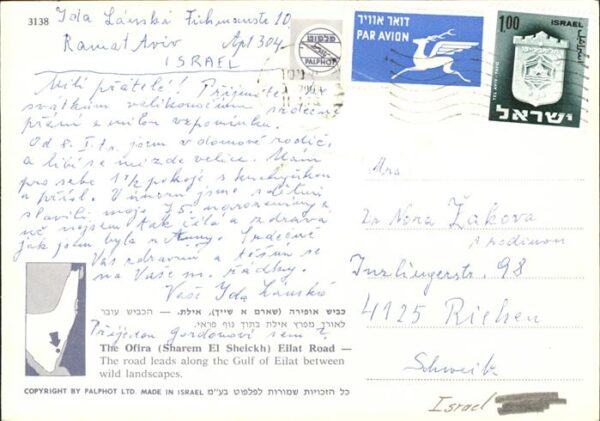 3138
Ida Lánská Fichmanste 20
Ramat Aviv Apt 304
ISRAEL
פלפוט
PALPHOT
דואר אוויר
PAR AVION
1.00 ISRAEL
TEL AVIV - YAFO
ישראל
Milí přátelé! Přijměte
svátkům velikonočním srdečné
přání a milou vzpomínku.
Od 8. I. t.r. jsem v domově rodičů
a líbí se mi zde velice. Mám
pro sebe 1½ pokoje s kuchyňkou
a přísl. V únoru jsme s dětmi
slavili moje 75. narozeniny a
nejsem tak čilá a zdravá
jak jsem byla. Srdečně
Vás zdravím a těším se
na Vaše m. řádky.
Vaše Ida Lánská
Mrs
Dr Nora Žáková
s rodinou
Inzlingerstr. 98
4125 Riehen
Schweiz
כביש אופירה (שארם א שייך), אילת. – הכביש עובר
לאורך מפרץ אילת בתוך נוף פראי.
The Ofira (Sharem El Sheickh) Eilat Road —
The road leads along the Gulf of Eilat between
wild landscapes.
COPYRIGHT BY PALPHOT LTD. MADE IN ISRAEL כל הזכויות שמורות לפלפוט בע"מ
Israel